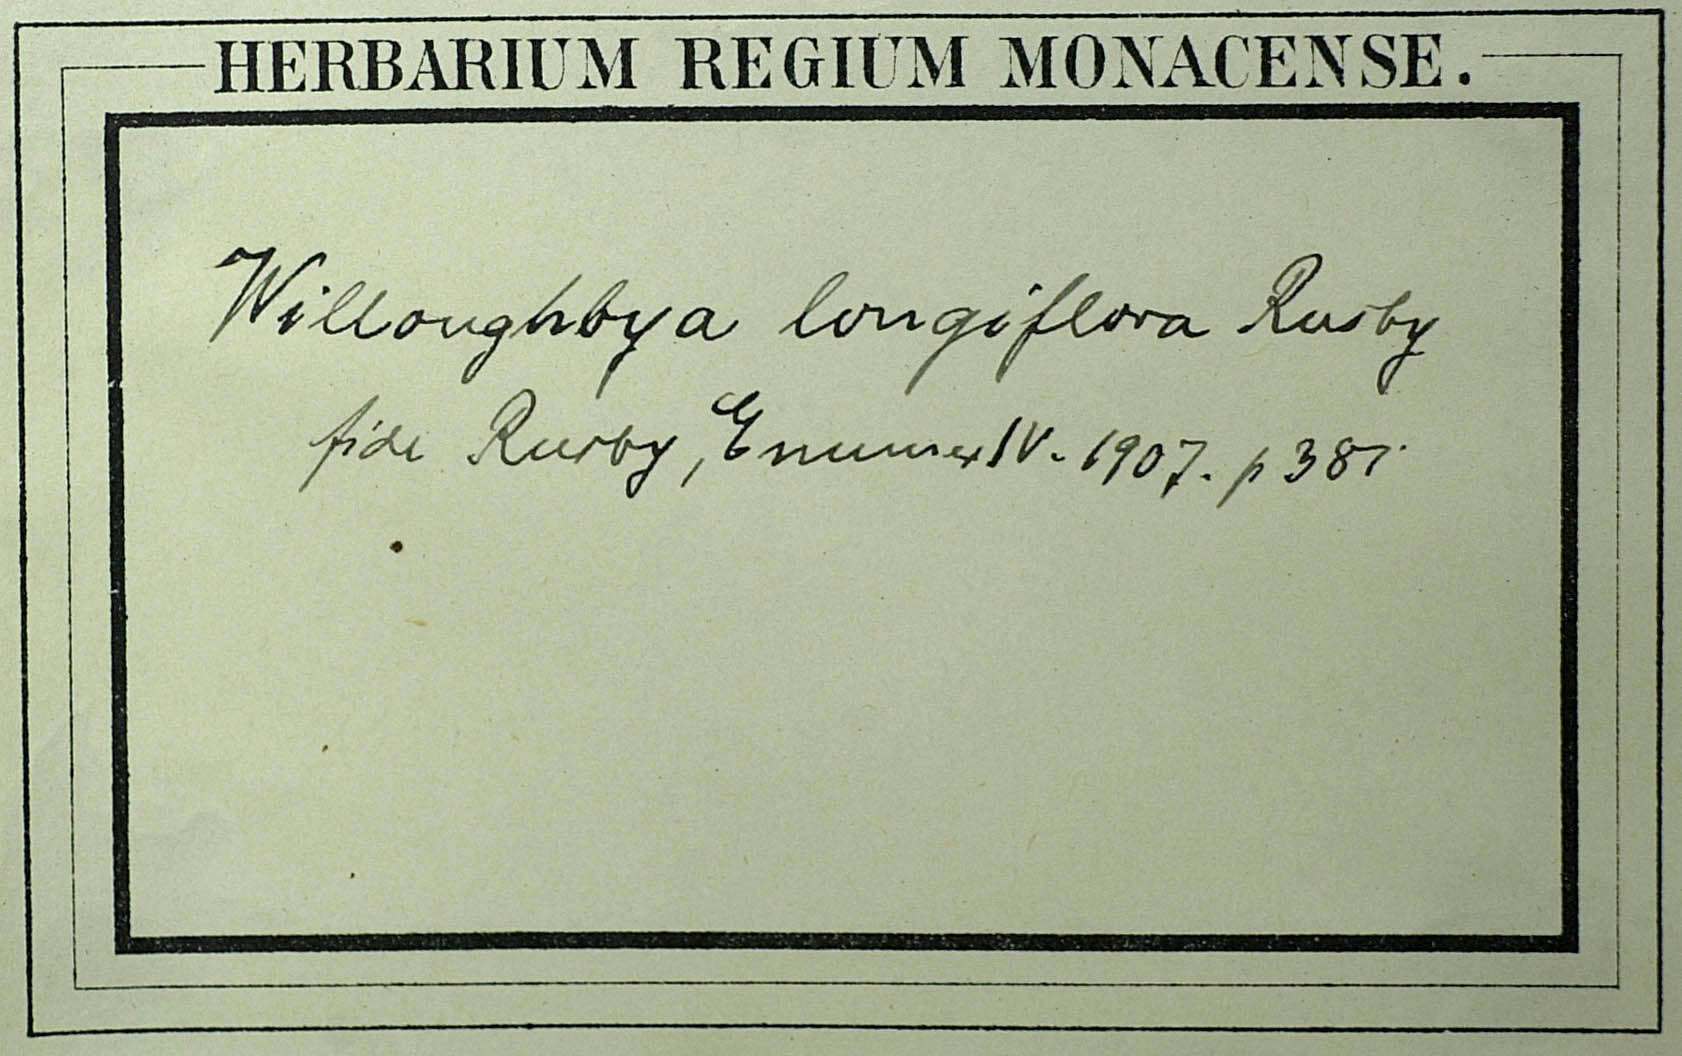 HERBARIUM REGIUM MONACENSE.
Willoughbya longiflora Rusby
fide Rusby, Enumer IV. 1907. p 381